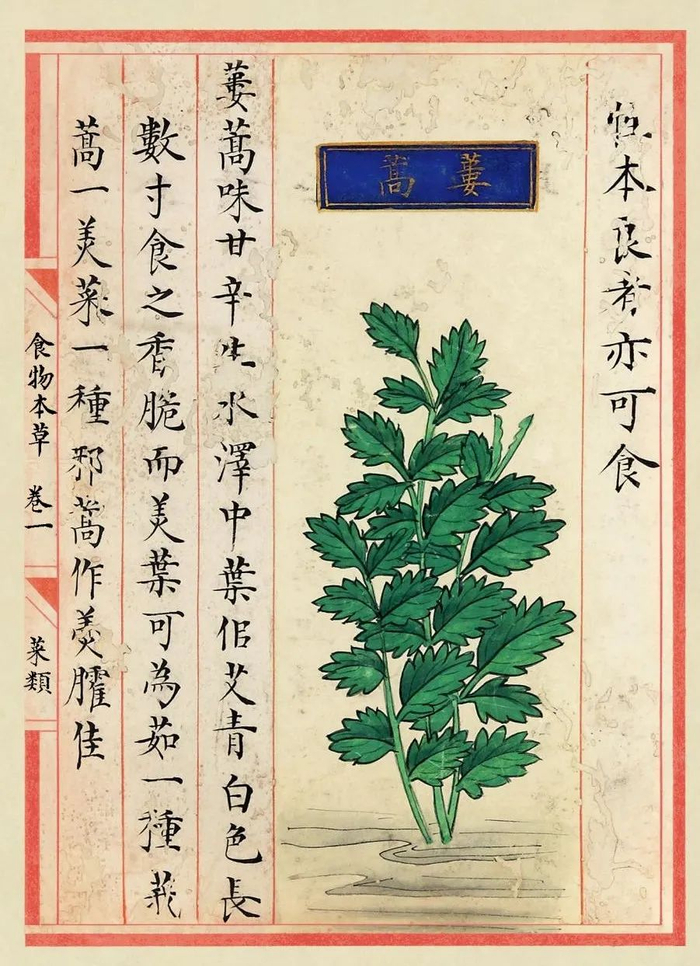 本良者亦可食
蔞蒿
蔞蒿味甘辛生水澤中葉佀艾青白色長
數寸食之香脆而美葉可為茹一種莪
蒿一美菜一種邪蒿作羹臛佳
食物本草 卷一
菜類